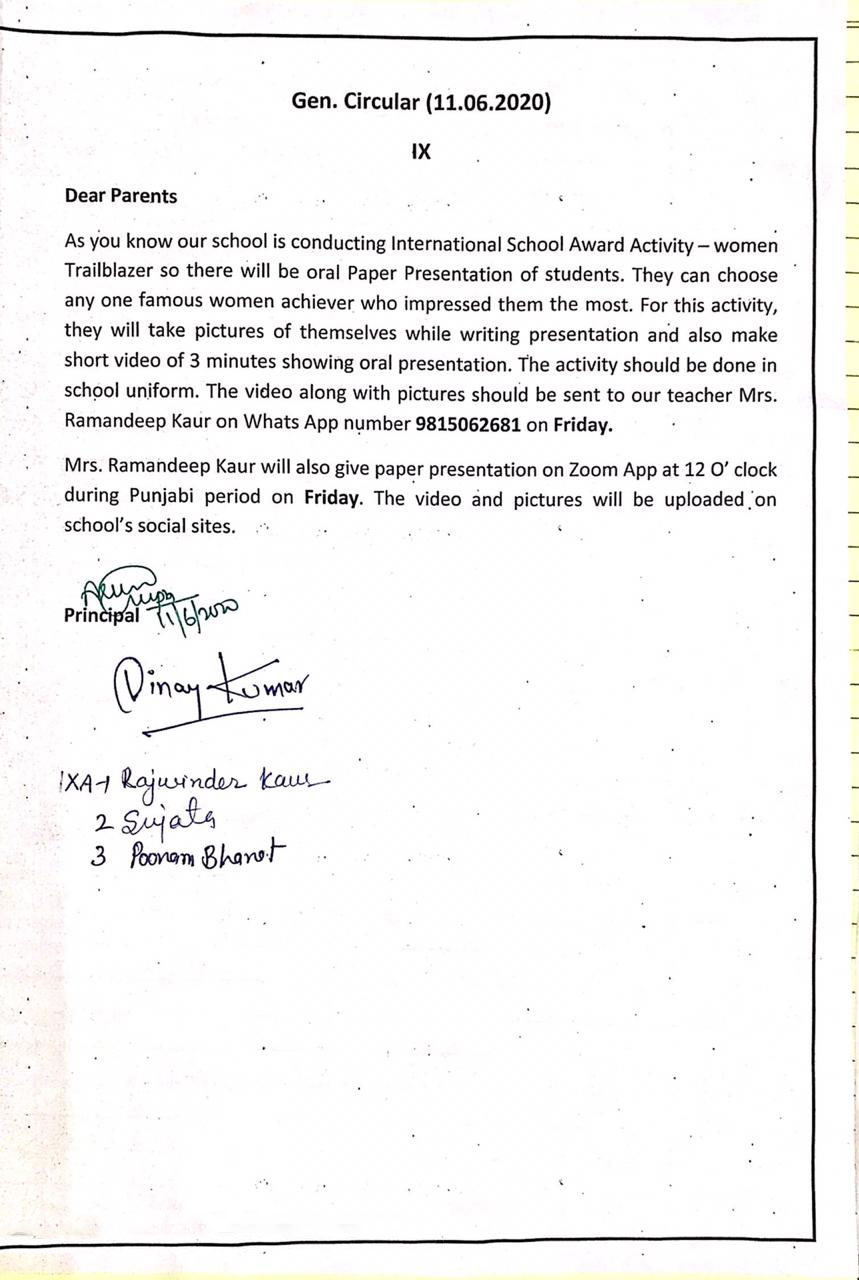 Gen. Circular (11.06.2020)
IX
Dear Parents
As you know our school is conducting International School Award Activity – women
Trailblazer so there will be oral Paper Presentation of students. They can choose
any one famous women achiever who impressed them the most. For this activity,
they will take pictures of themselves while writing presentation and also make
short video of 3 minutes showing oral presentation. The activity should be done in
school uniform. The video along with pictures should be sent to our teacher Mrs.
Ramandeep Kaur on Whats App number 9815062681 on Friday.
Mrs. Ramandeep Kaur will also give paper presentation on Zoom App at 12 O' clock
during Punjabi period on Friday. The video and pictures will be uploaded on
school's social sites.
Principal 11/6/2020
Vinay Kumar
IXA-1 Rajwinder Kaur
2 Sujata
3 Poonam Bhanot